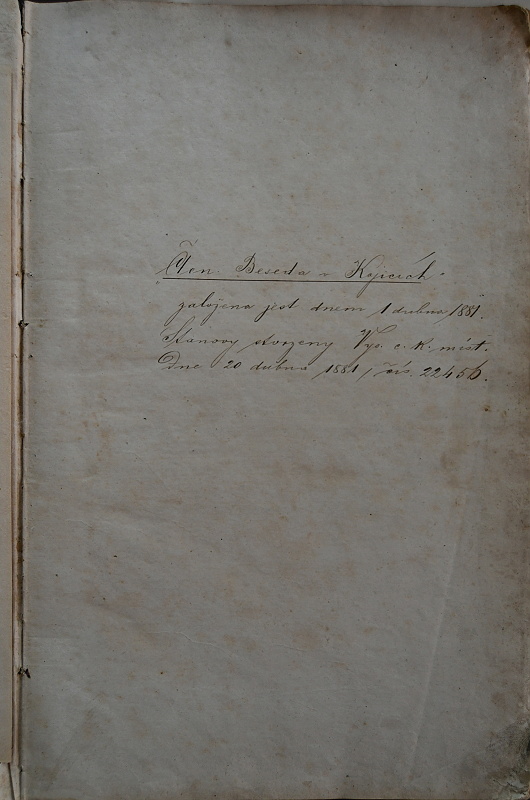 „Čten. Beseda v Kyjicích"
založena jest dnem 1 dubna 1881.
Stanovy stvrzeny Vys. c. k. míst.
Dne 20 dubna 1881, čís. 22456.